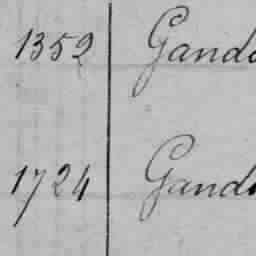 1352 Gand
1724 Gand